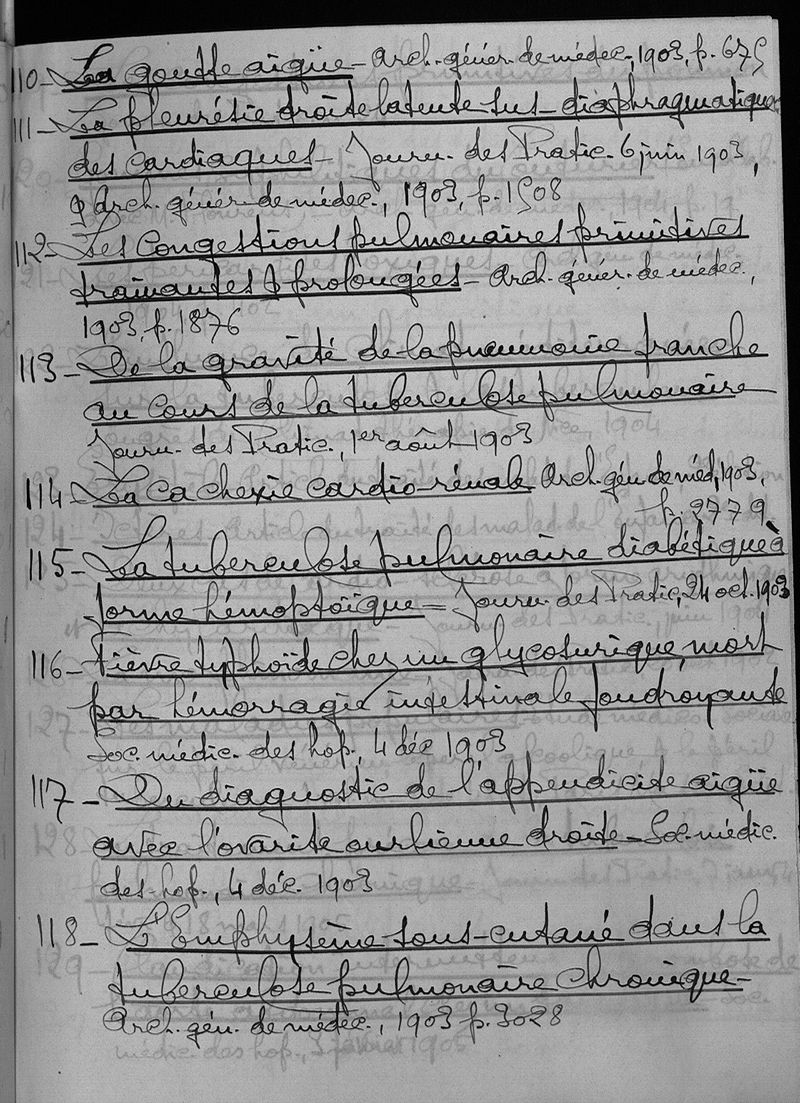 110 - La goutte aigüe - Arch. génér. de médec., 1903, p. 675
111 - La pleurésie droite latente sus-diaphragmatique
des cardiaques - Journ. des Pratic. 6 juin 1903,
& Arch. génér. de médec., 1903, p. 1508
112 - Les Congestions pulmonaires primitives
trainantes & prolongées - Arch. génér. de médec.,
1903, p. 1876
113 - De la gravité de la pneumonie franche
au cours de la tuberculose pulmonaire
Journ. des Pratic., 1er août 1903
114 - La Cachexie cardio-rénale Arch. gén. de méd., 1903,
p. 2779
115 - La tuberculose pulmonaire diabétique à
forme hémoptoïque - Journ. des Pratic., 24 oct. 1903
116 - Fièvre typhoïde chez un glycosurique, mort
par hémorragie intestinale foudroyante
Soc. médic. des hop., 4 déc 1903
117 - Du diagnostic de l'appendicite aigüe
avec l'ovarite ourlienne droite - Soc. médic.
des hop., 4 déc. 1903
118 - L'Emphysème sous-cutané dans la
tuberculose pulmonaire chronique -
Arch. gén. de médec., 1903 p. 3028